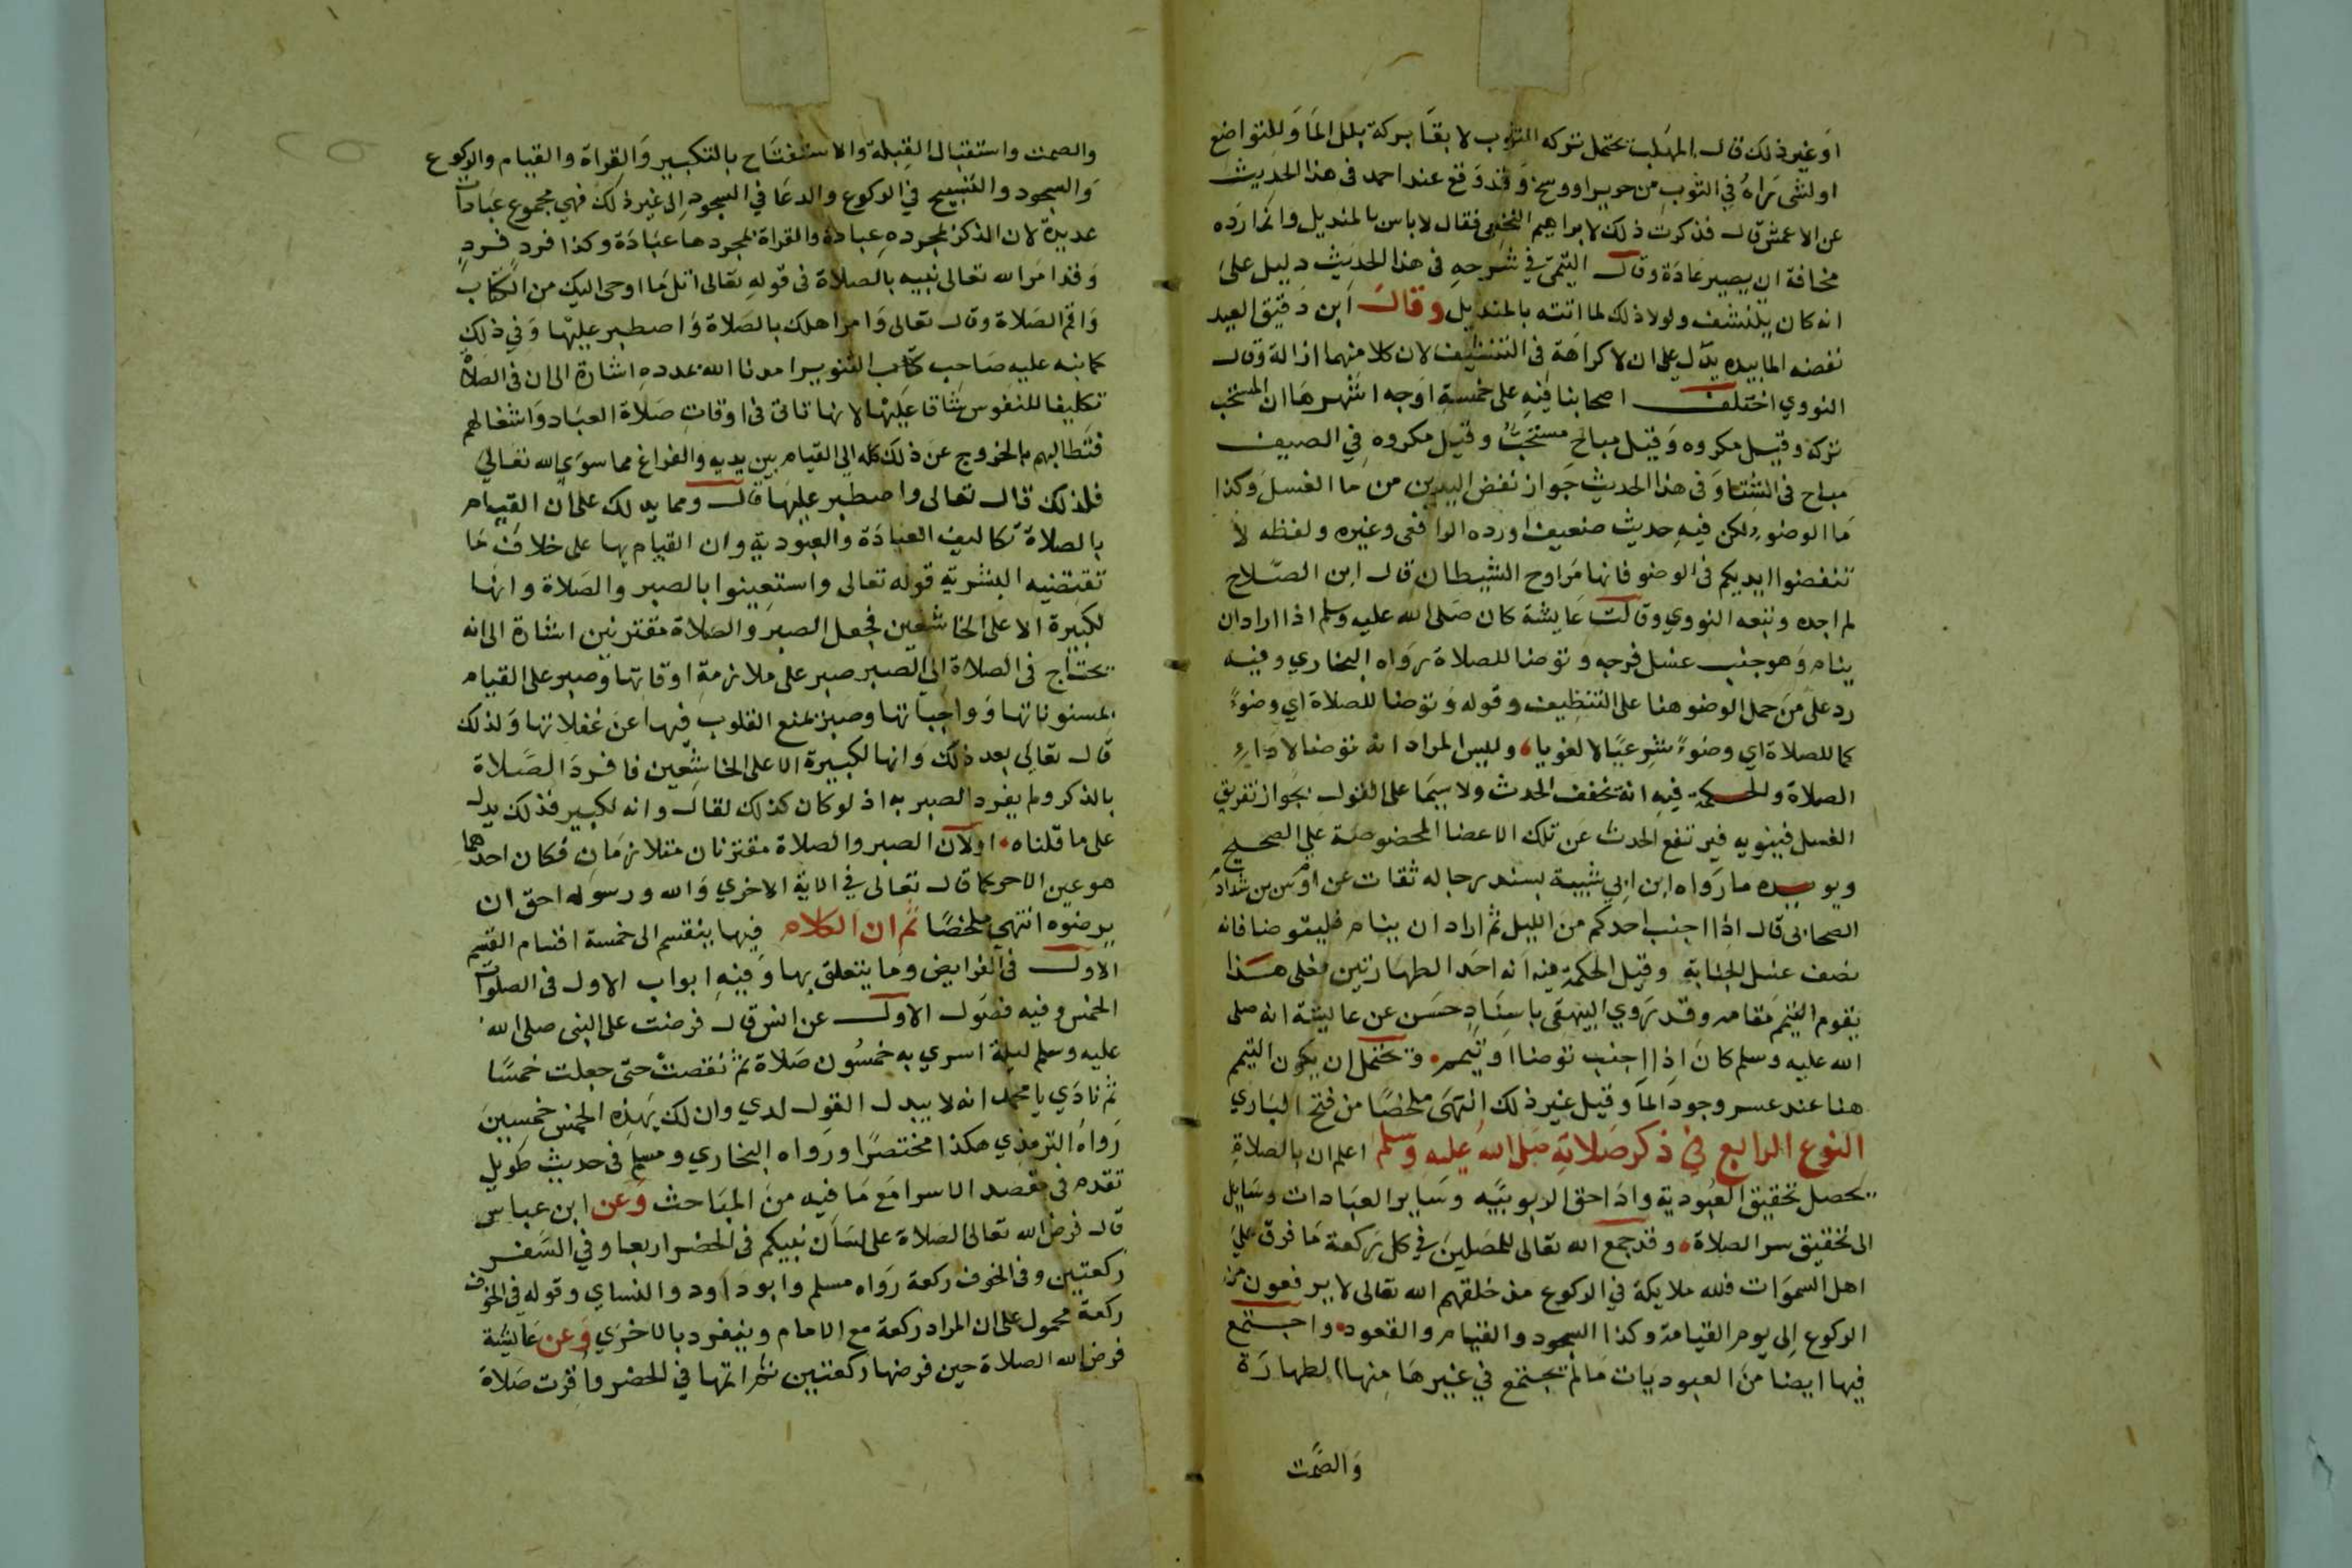 او غير ذلك قال المهلب يحتمل تركه الثوب لابقاء بركة بلل الماء وللتواضع
او لشى يراه في الثوب من حرير او وسخ وقد وقع عند احمد فى هذا الحديث
عن الاعمش قال فذكرت ذلك لابراهيم النخعي فقال لا باس بالمنديل وانما رده
مخافة ان يصير عادة وقال التيمي في شرحه فى هذا الحديث دليل على
انه كان يتنشف ولولا ذلك لما اتته بالمنديل وقال ابن دقيق العيد
نفضه الما بيده يدل على ان لا كراهة فى التنشيف لان كلا منهما ازالة وقال
النووي اختلف اصحابنا فيه على خمسة اوجه اشهرها ان المستحب
تركه وقيل مكروه وقيل مباح مستحب وقيل مكروه في الصيف
مباح فى الشتا وفى هذا الحديث جواز نفض اليدين من ما الغسل وكذا
ما الوضو ولكن فيه حديث ضعيف اورده الرافعى وغيره ولفظه لا
تنفضوا ايديكم فى الوضو فانها مراوح الشيطان قال ابن الصلاح
لم اجده وتبعه النووي وقالت عايشة كان صلى الله عليه وسلم اذا اراد ان
ينام وهو جنب غسل فرجه وتوضا للصلاة رواه البخاري وفيه
رد على من حمل الوضو هنا على التنظيف وقوله وتوضا للصلاة اي وضوءً
كما للصلاة اي وضوءً شرعيا لا لغويا وليس المراد انه توضا لاداء
الصلاة والحكمة فيه انه تخفف الحدث ولا سيما على القول بجواز تفريق
الغسل فينويه فيرتفع الحدث عن تلك الاعضا المخصوصة على الصحيح
ويويده ما رواه ابن ابي شيبة بسند رجاله ثقات عن اوس بن شداد
الصحابى قال اذا اجنب احدكم من الليل ثم اراد ان ينام فليتوضا فانه
نصف غسل الجنابة وقيل الحكمة فيه انه احد الطهارتين فعلى هذا
يقوم التيمم مقامه وقد روي البيهقى باسناد حسن عن عايشة انه صلى
الله عليه وسلم كان اذا اجنب توضا او تيمم ويحتمل ان يكون التيمم
هنا عند عسر وجود الما وقيل غير ذلك انتهى ملخصا من فتح الباري
النوع الرابع في ذكر صلاته صلى الله عليه وسلم اعلم ان بالصلاة
يحصل تحقيق العبودية واداء حق الربوبية وساير العبادات وسايل
الى تحقيق سر الصلاة وقد جمع الله تعالى للمصلين في كل ركعة ما فرق على
اهل السموات فلله ملايكة في الركوع منذ خلقهم الله تعالى لا يرفعون من
الركوع الى يوم القيامة وكذا السجود والقيام والقعود واجتمع
فيها ايضا من العبوديات ما لم يجتمع في غيرها منها الطهارة
والصمت
والصمت واستقبال القبلة والاستفتاح بالتكبير والقراة والقيام والركوع
والسجود والتسبيح في الركوع والدعا في السجود الى غير ذلك فهي مجموع عبادات
عديدة لان الذكر بمجرده عبادة والقراة بمجردها عبادة وكذا فرد فرد
وقد امر الله تعالى نبيه بالصلاة فى قوله تعالى اتل ما اوحى اليك من الكتاب
واقم الصلاة وقال تعالى وامر اهلك بالصلاة واصطبر عليها وفي ذلك
كما نبه عليه صاحب كتاب التنوير امدنا الله بمدده اشارة الى ان فى الصلاة
تكليفا للنفوس شاقا عليها لانها تاتى فى اوقات صلاة العباد واشغالهم
فتطالبهم بالخروج عن ذلك كله الي القيام بين يديه والفراغ مما سوي الله تعالى
فلذلك قال تعالى واصطبر عليها قال ومما يدلك على ان القيام
بالصلاة تكاليف العبادة والعبودية وان القيام بها على خلاف ما
تقتضيه البشرية قوله تعالى واستعينوا بالصبر والصلاة وانها
لكبيرة الا على الخاشعين فجعل الصبر والصلاة مقترنين اشارة الى انه
يحتاج فى الصلاة الى الصبر صبر على ملازمة اوقاتها وصبر على القيام
بمسنوناتها وواجباتها وصبر بمنع القلوب فيها عن غفلاتها ولذلك
قال تعالى بعد ذلك وانها لكبيرة الا على الخاشعين فافرد الصلاة
بالذكر ولم يفرد الصبر به اذ لو كان كذلك لقال وانه لكبير فذلك يدل
على ما قلناه او لان الصبر والصلاة مقترنان متلازمان فكان احدهما
هو عين الاخر كما قال تعالى في الاية الاخري والله ورسوله احق ان
يرضوه انتهى ملخصا ثم ان الكلام فيها ينقسم الى خمسة اقسام القسم
الاول فى الفرايض وما يتعلق بها وفيه ابواب الاول فى الصلوات
الخمس وفيه فصول الاول عن انس قال فرضت على النبى صلى الله
عليه وسلم ليلة اسري به خمسون صلاة ثم نقصت حتى جعلت خمسا
ثم نادي يا محمد انه لا يبدل القول لدي وان لك بهذه الخمس خمسين
رواه الترمذي هكذا مختصرا ورواه البخاري ومسلم فى حديث طويل
تقدم فى مقصد الاسرا مع ما فيه من المباحث وعن ابن عباس
قال فرض الله تعالى الصلاة على لسان نبيكم فى الحضر اربعا وفي السفر
ركعتين وفى الخوف ركعة رواه مسلم وابو داود والنساي وقوله في الخوف
ركعة محمول على ان المراد ركعة مع الامام وينفرد بالاخري وعن عايشة
فرض الله الصلاة حين فرضها ركعتين ثم اتمها في الحضر واقرت صلاة